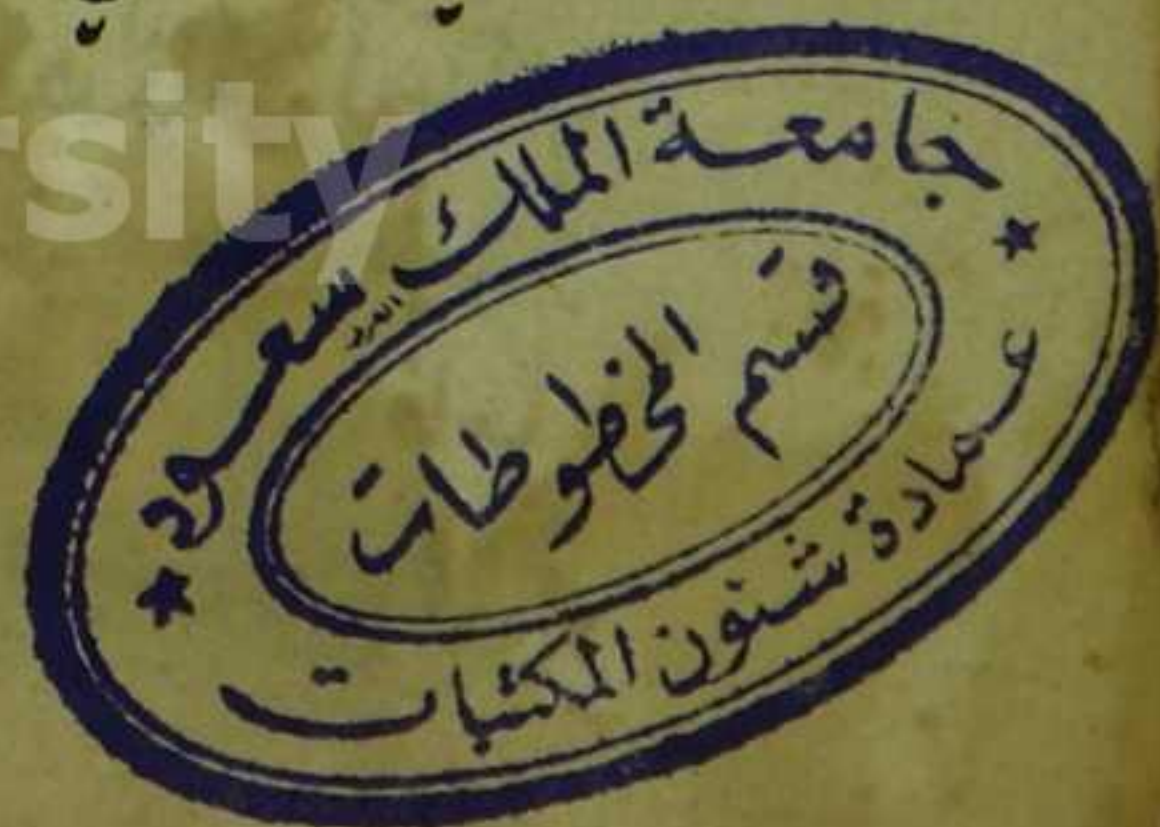 rsity
جامعة الملك سعود
قسم المخطوطات
عمادة شئون المكتبات